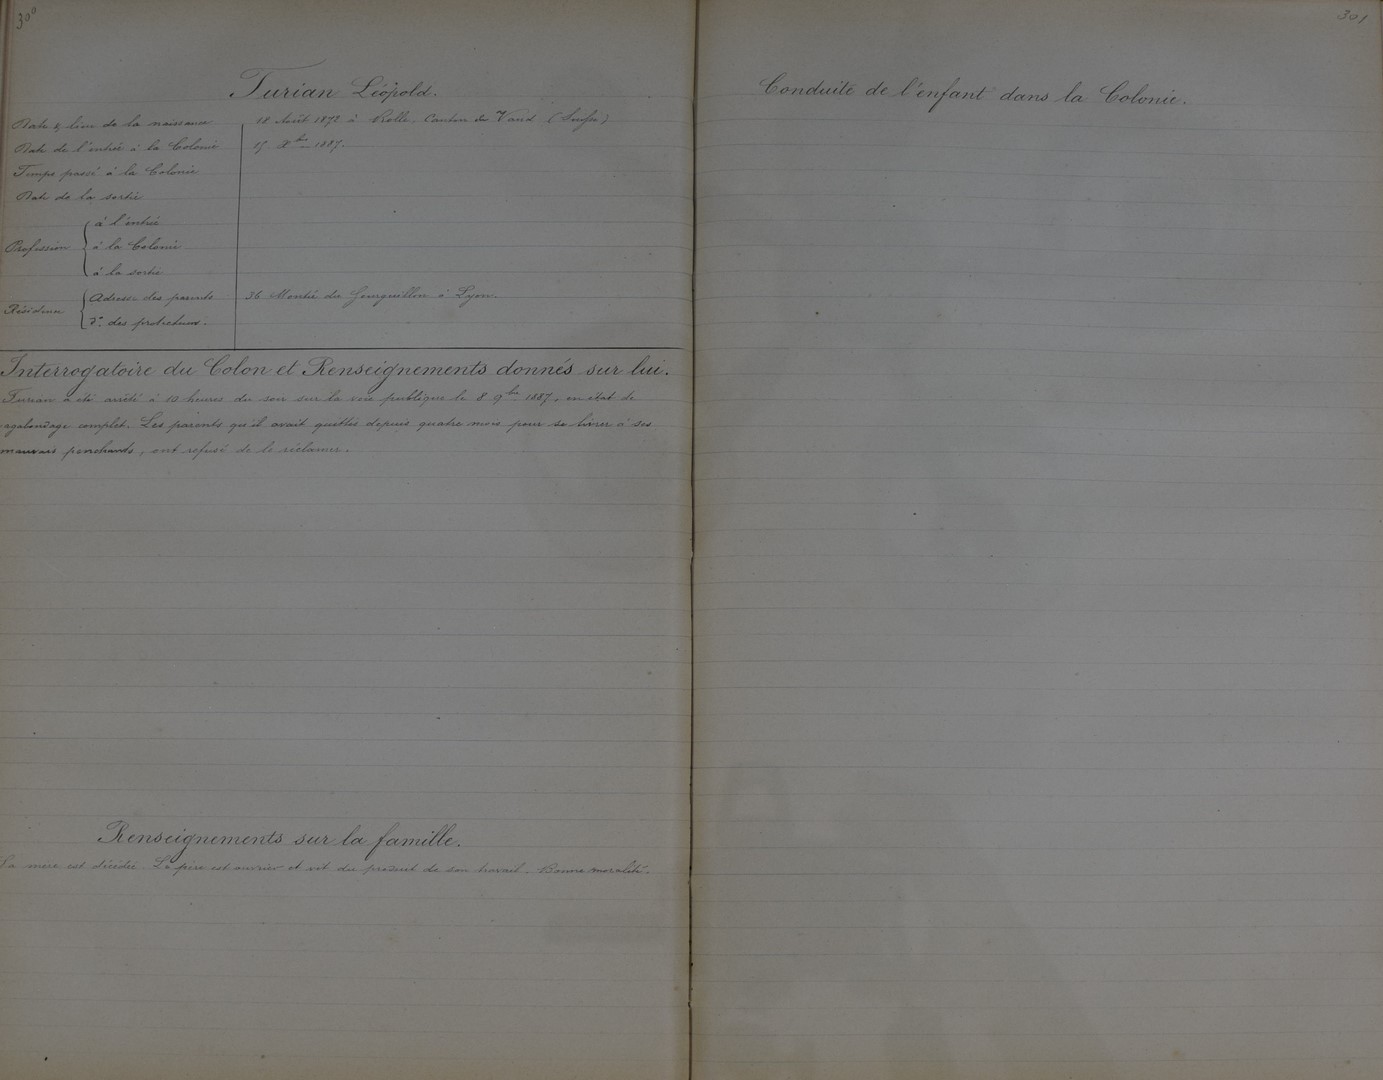 300
Turian Léopold.
Date & lieu de la naissance 18 Août 1872 à Rolle, Canton de Vaud (Suisse)
Date de l'entrée à la Colonie 15 Xbre 1887.
Temps passé à la Colonie
Date de la sortie
Profession
à l'entrée
à la Colonie
à la sortie
Résidence
Adresse des parents 36 Montée du Gourguillon à Lyon.
do. des protecteurs.
Interrogatoire du Colon et Renseignements donnés sur lui.
Turian a été arrêté à 10 heures du soir sur la voie publique le 8 9bre 1887, en état de
vagabondage complet. Les parents qu'il avait quittés depuis quatre mois pour se livrer à ses
mauvais penchants, ont refusé de le réclamer.
Renseignements sur la famille.
La mère est décédée. Le père est ouvrier et vit du produit de son travail. Bonne moralité.
301
Conduite de l'enfant dans la Colonie.